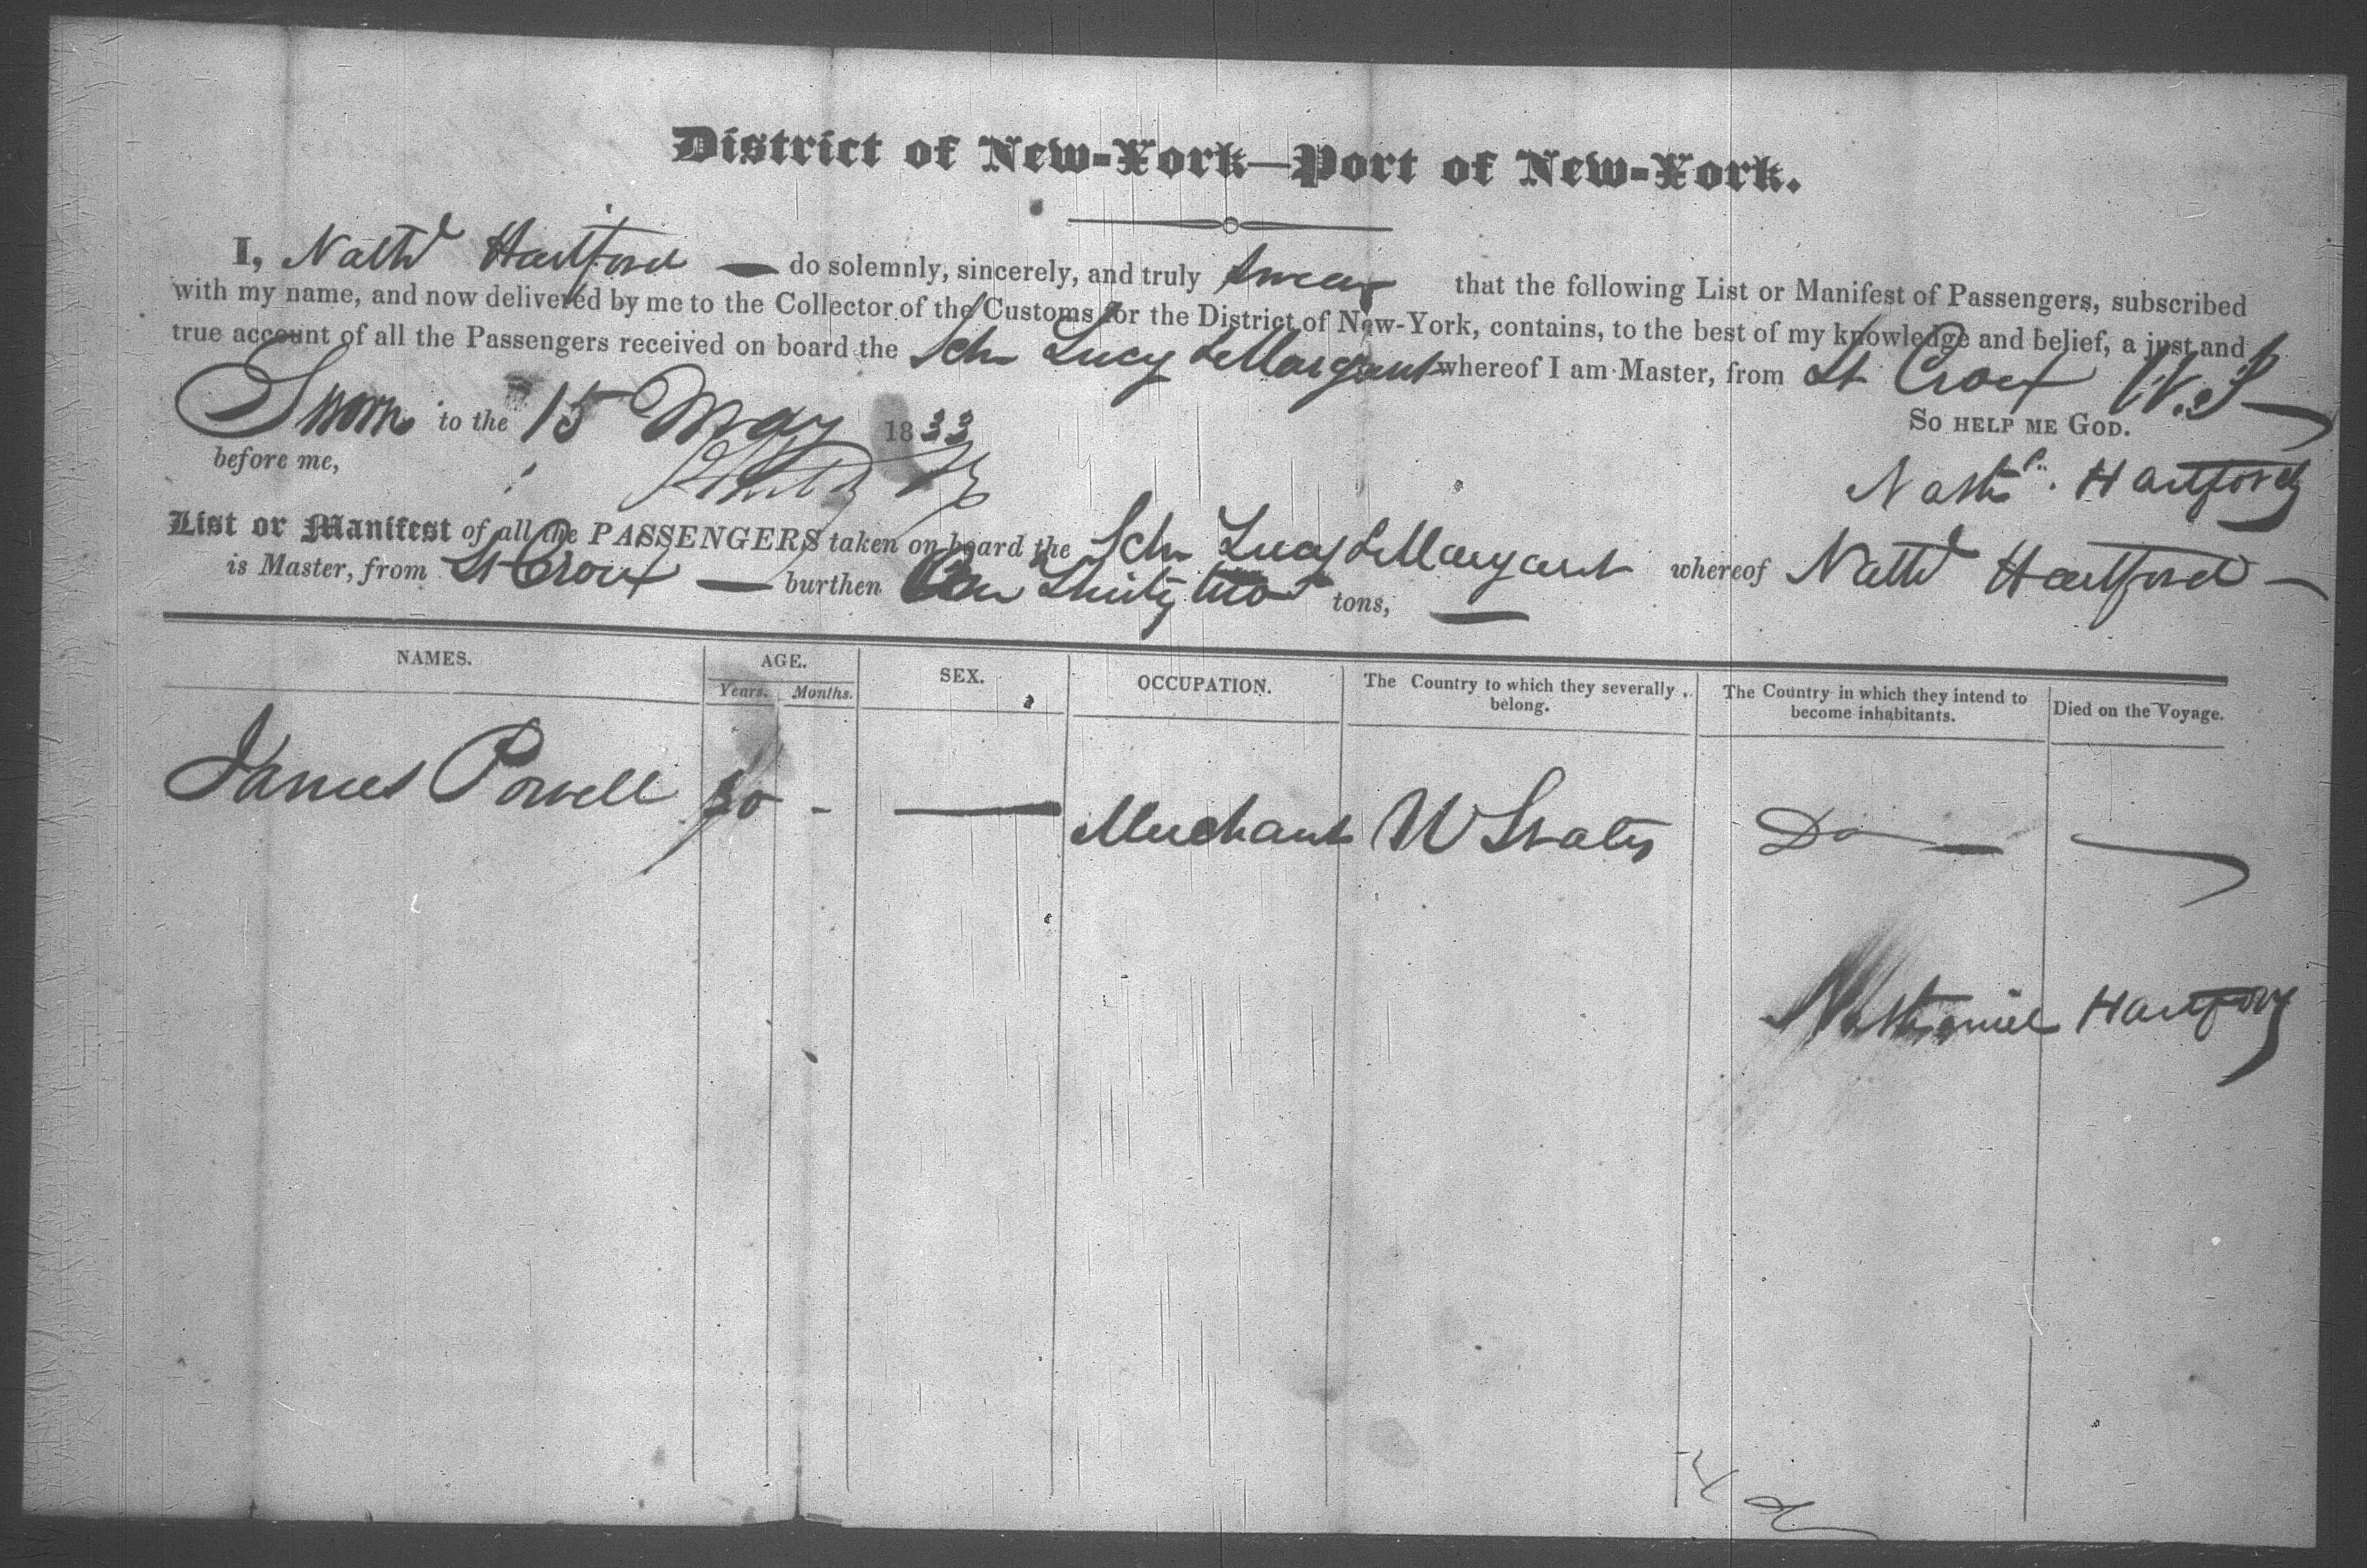 District of New-York—Port of New-York.
I, Nathl Hartford — do solemnly, sincerely, and truly swear that the following List or Manifest of Passengers, subscribed
with my name, and now delivered by me to the Collector of the Customs for the District of New-York, contains, to the best of my knowledge and belief, a just and
true account of all the Passengers received on board the Schr Lucy & Margaret whereof I am Master, from St Croix W.I —
Sworn to the 15 May 1833 So help me God.
before me,
Nathl. Hartford
List or Manifest of all the PASSENGERS taken on board the Schr Lucy & Margaret whereof Nathl Hartford —
is Master, from St Croix — burthen One Thirty two tons, —
NAMES. AGE. SEX. OCCUPATION. The Country to which they severally belong. The Country in which they intend to become inhabitants. Died on the Voyage.
Years. Months.
James Powell 30 - — Merchant U States Do — —
Nathaniel Hartford